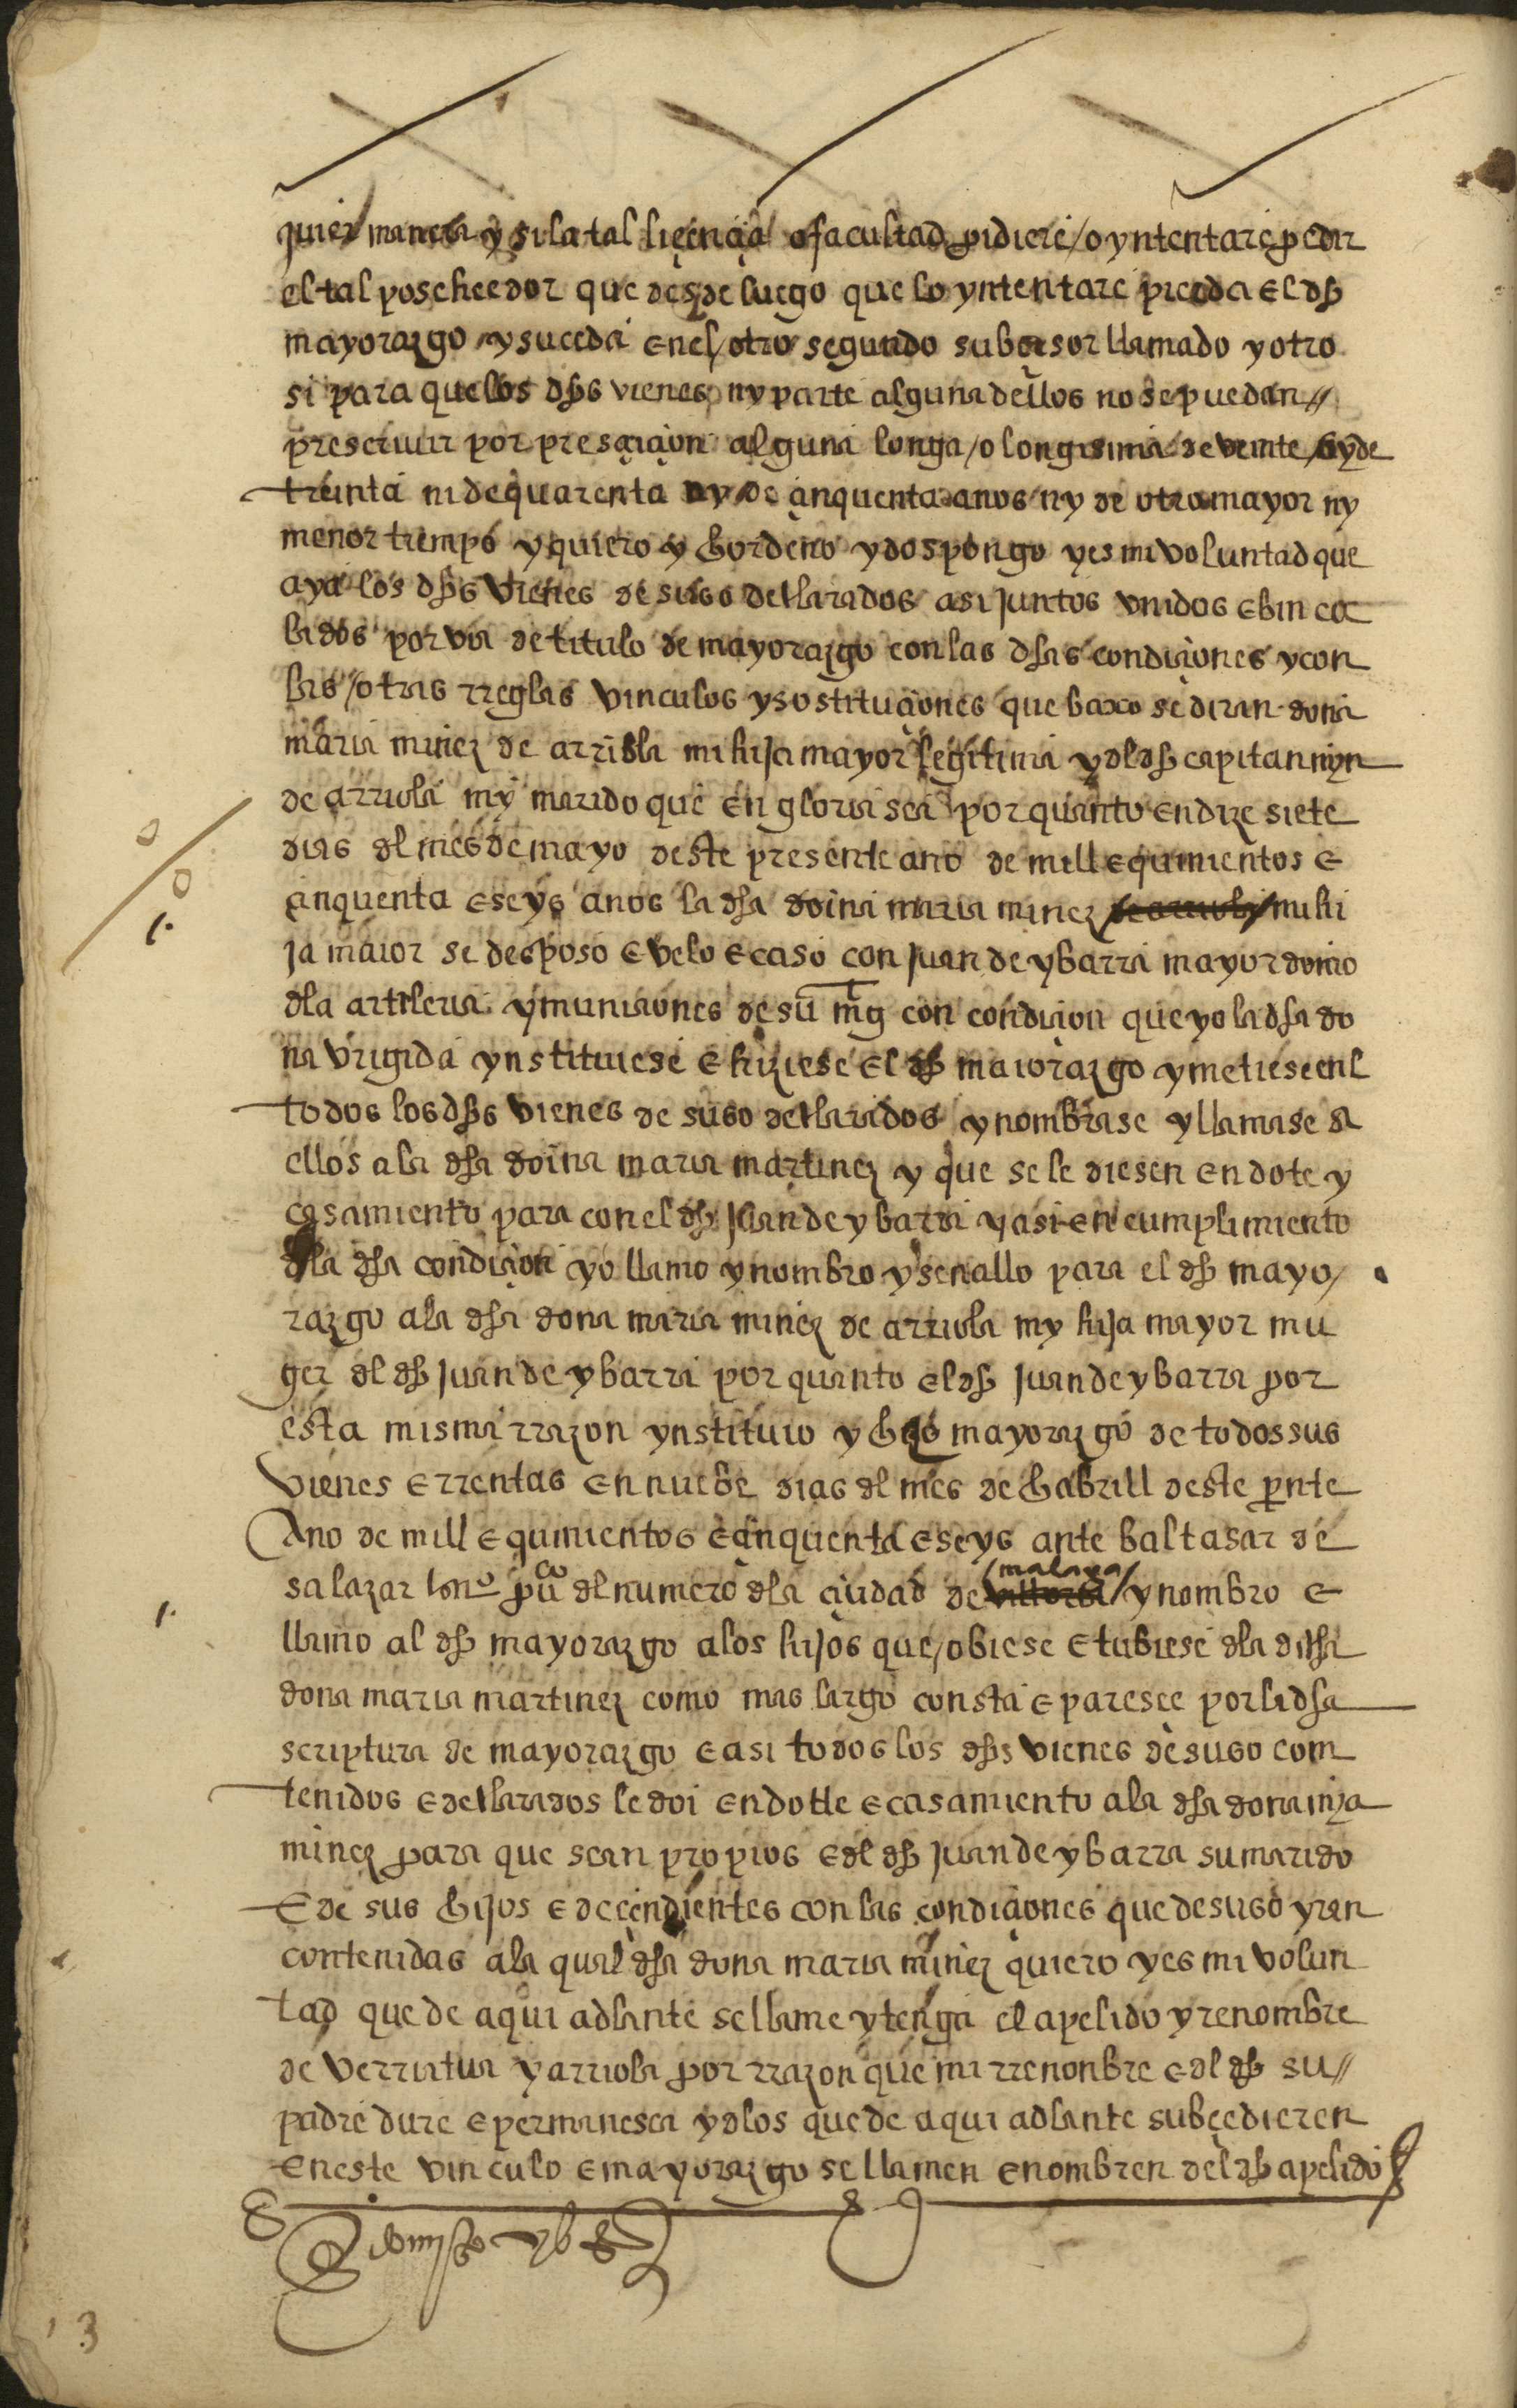 quier manera y si la tal liçençia o facultad pidiere / o yntentare pedir
el tal poseheedor que desde luego que lo yntentare pierda el dho
mayorazgo y suceda en el / otro segundo subçesor llamado y otro
si para que los dhos vienes ny parte alguna dellos no se puedan //
prescriuir por presçriçion alguna longa / o longisima de veinte / ny de
treinta ni de quarenta ny de çinquenta anos ny de otro mayor ny
menor tiempo y quiero y hordeno y dospongo y es mi voluntad que
aya los dhos vienes de suso declarados asi juntos vnidos e bincu
lados por via de titulo de mayorazgo con las dhas condiçiones y con
las / otras rreglas vinculos y sostituçiones que baxo se diran dona
maria minez de arriola mi hija mayor legitima y dl dho capitan myn
de arriola my marido que en gloria sea por quanto en dize siete
dias dl mes de mayo deste presente ano de mill e quinientos e
çinquenta e seys anos la dha doina maria minez mi hi
ja maior se desposo e velo e caso con juan de ybarra mayordomo
dla artileria y muniçiones de su mg con condiçion que yo la dha do
na vrigida ynstituiese e hiziese el dho maiorazgo y metiese enl
todos los dhos vienes de suso declarados y nombrase y llamase a
ellos a la dha doina maria martinez y que se le diesen en dote y
casamiento para con el dho juan de ybarra y asi en cumplimiento
dla dha condiçion yo llamo y nombro y senallo para el dho mayo /
razgo a la dha dona maria minez de arriola my hija mayor mu
ger dl dho juan de ybarra por quanto el dho juan de ybarra por
esta misma rrazon ynstituio y hizo mayorazgo de todos sus
vienes e rrentas en nuebe dias dl mes de habrill deste pnte
Ano de mill e quinientos e çinquenta e seys ante baltasar de
salazar puco dl numero dla çiudad de / malaga / y nombro e
llamo al dho mayorazgo a los hijos que / obiese e tubiese dla dicha
dona maria martinez como mas largo consta e paresce por la dha
scriptura de mayorazgo e asi todos los dhos vienes de suso com
tenidos e declarados le doi en dotte e casamiento a la dha dona mya
minez para que sean propios e dl dho juan de ybarra su marido
E de sus hijos e deçendientes con las condiçiones que de suso yran
contenidas a la qual dha dona maria minez quiero y es mi volun
tad que de aqui adlante se llame y tenga el apelido y renombre
de verriatua y arriola por rrazon que mi rrenonbre e dl dho su //
padre dure e permanesca y dlos que de aqui adlante subçedieren
en este vinculo e mayorazgo se llamen e nombren del dho apelido